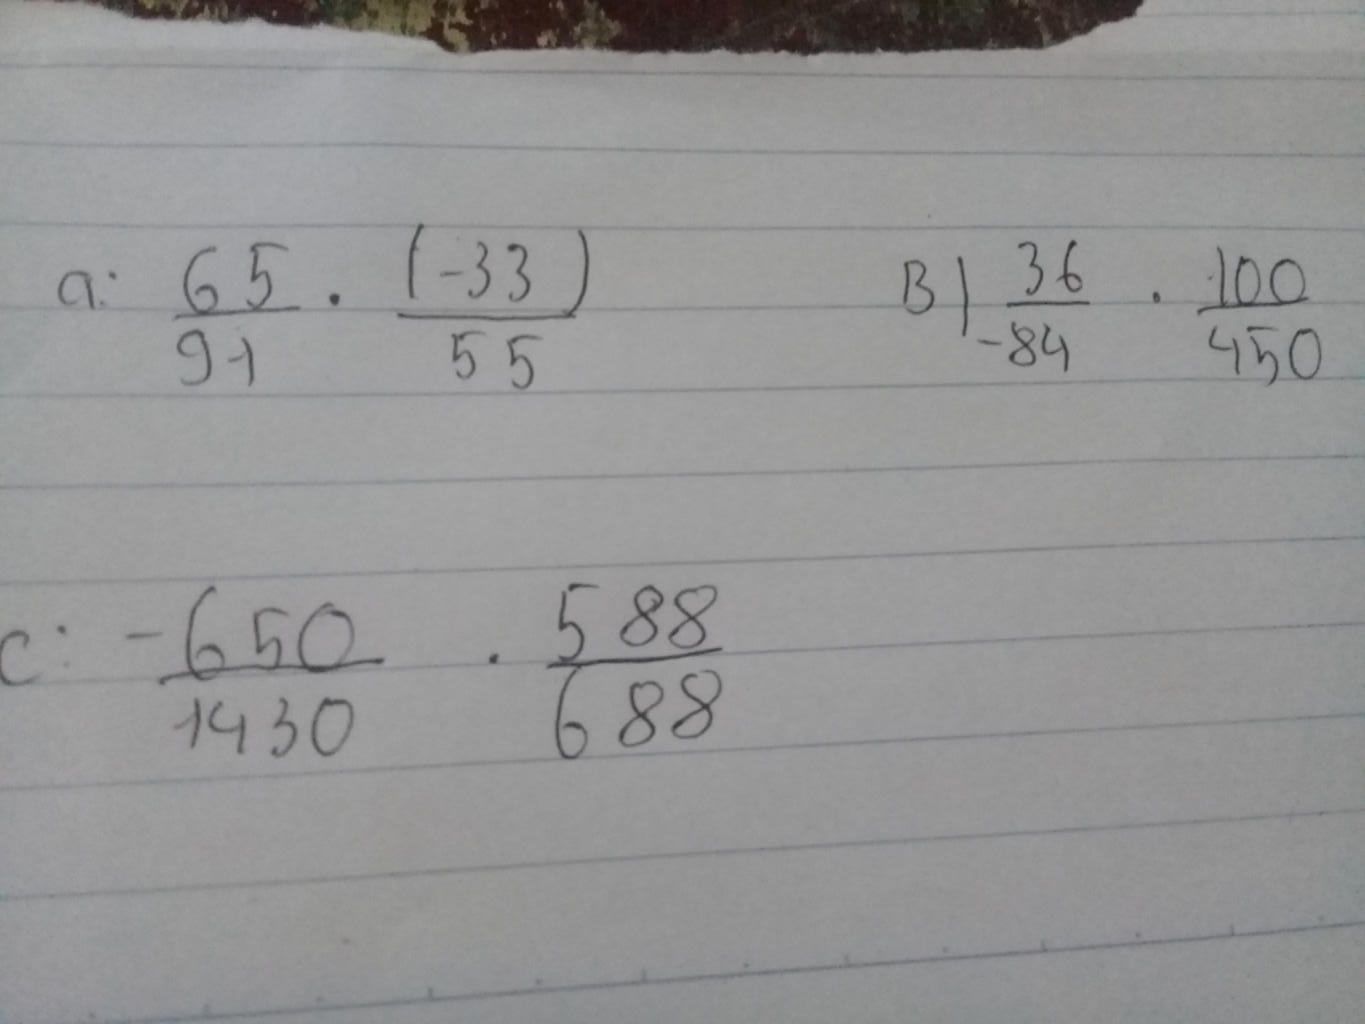 a: 65/91 . (-33)/55
B) 36/-84 . 100/450
c: -650/1430 . 588/688